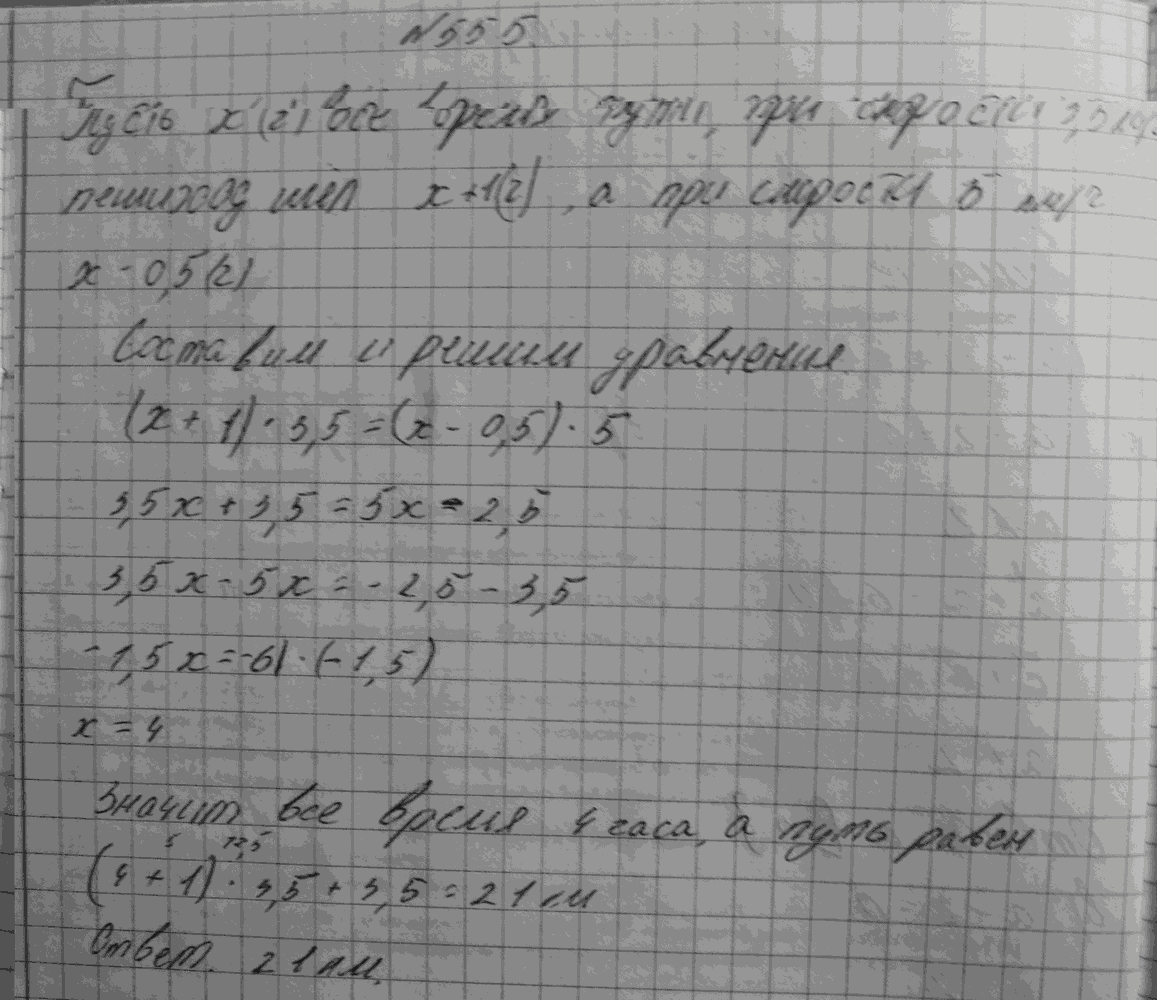 N555.
Пусть x (ч) все время пути, при скорости 3,5 км/ч
пешиход шел x+1(ч), а при скорости 5 км/ч
x - 0,5(ч)
Составим и решим уравнение
(x + 1) · 3,5 = (x - 0,5) · 5
3,5x + 3,5 = 5x - 2,5
3,5x - 5x = - 2,5 - 3,5
-1,5x = -6| · (-1,5)
x = 4
Значит все время 4 часа, а путь равен
(4 + 1) · 3,5 + 3,5 = 21 км
Ответ. 21 км.